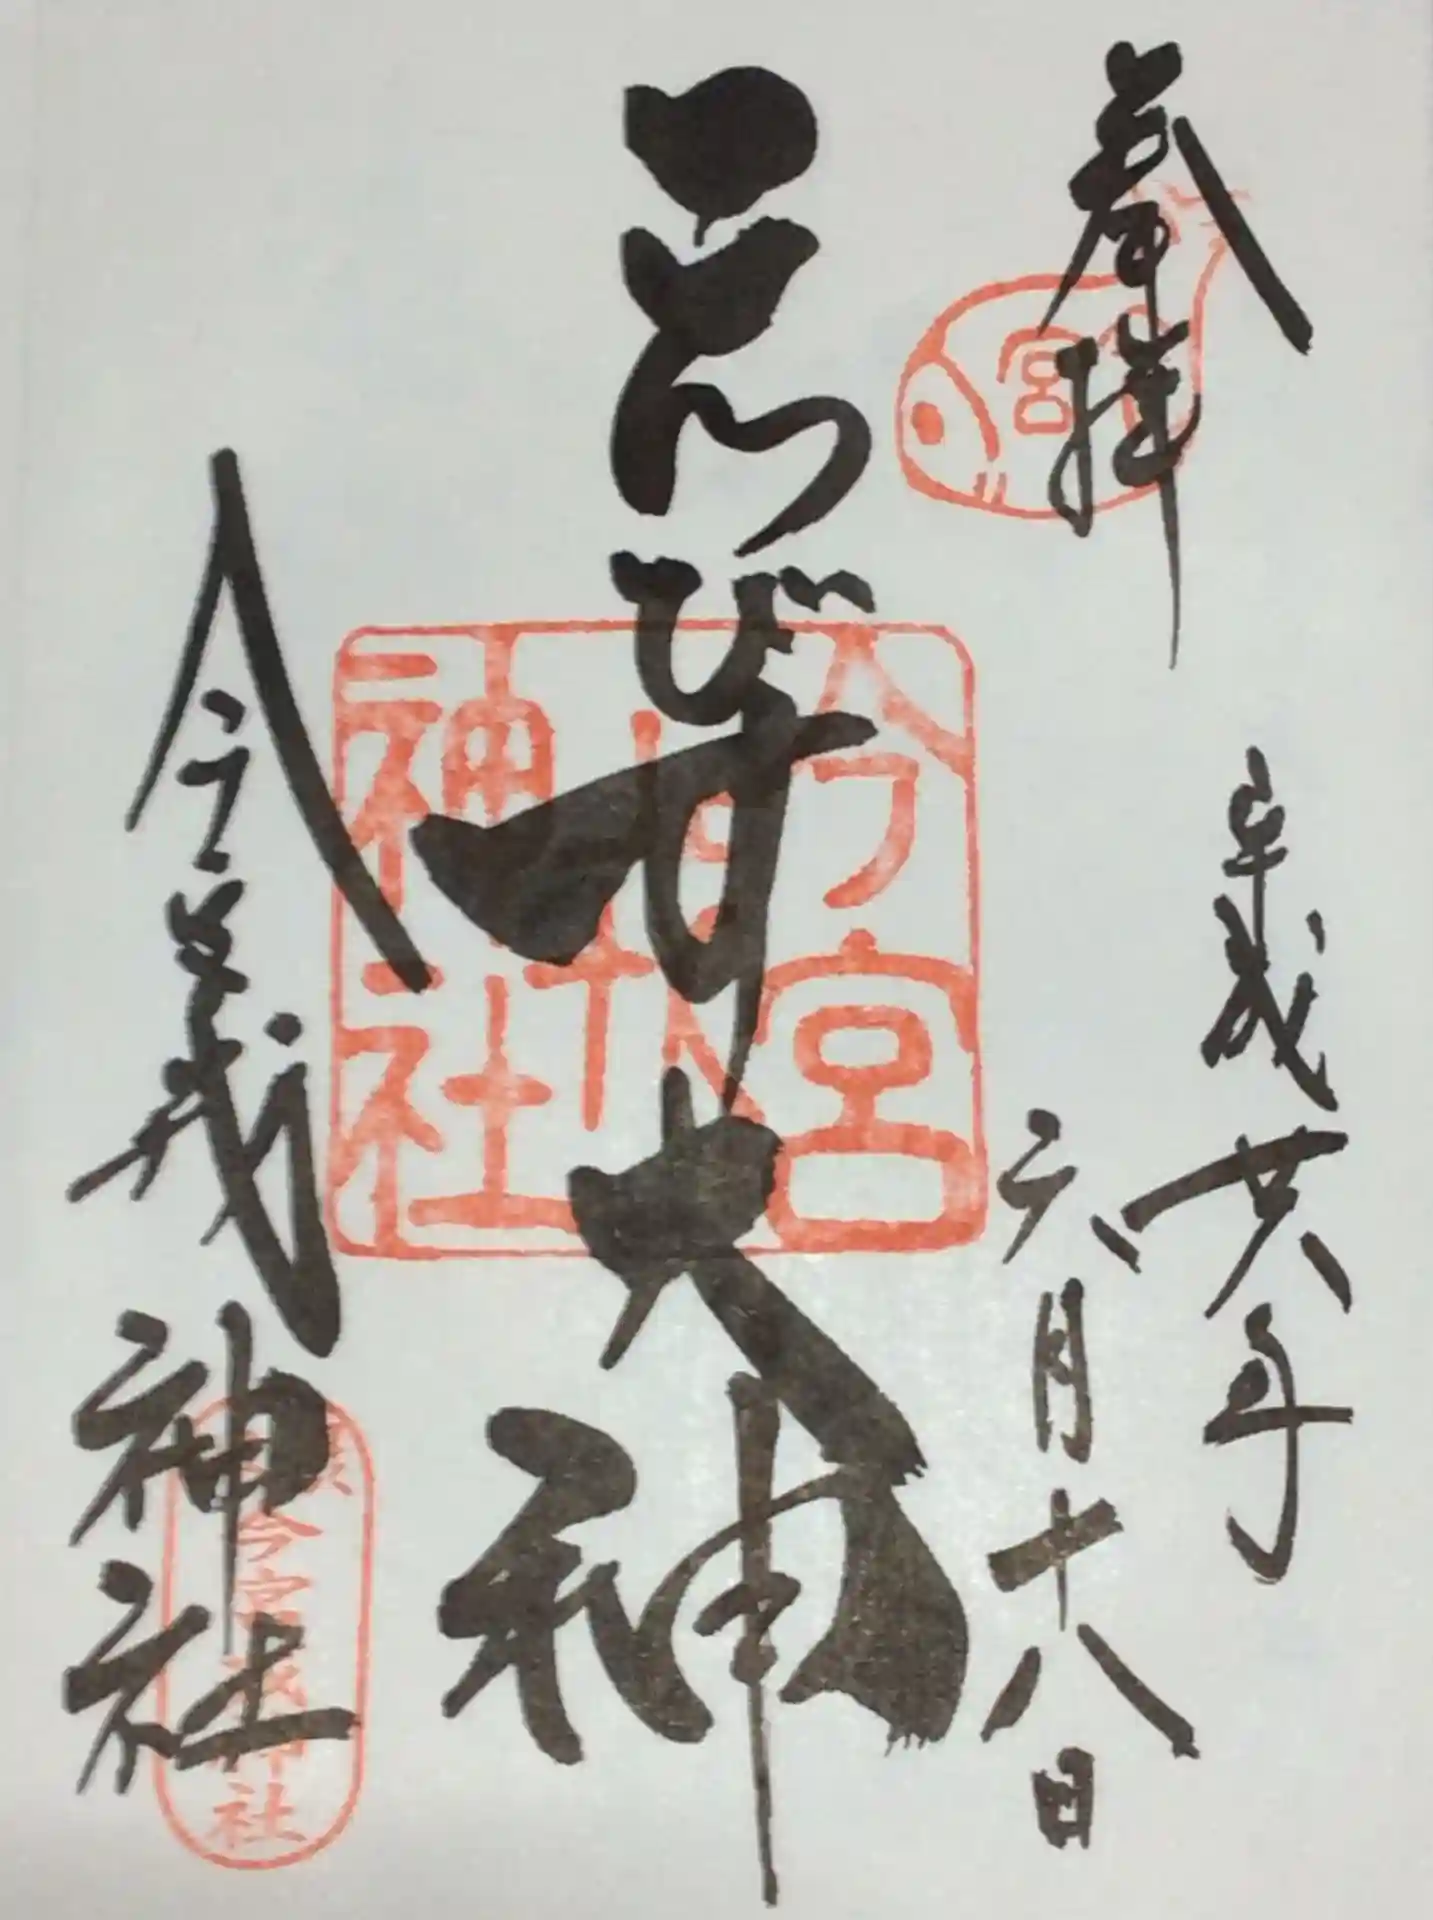 奉拝
平成廿六年
六月十八日
ゑびす大神
今宮戎神社
今宮
神社
今宮戎神社
宮